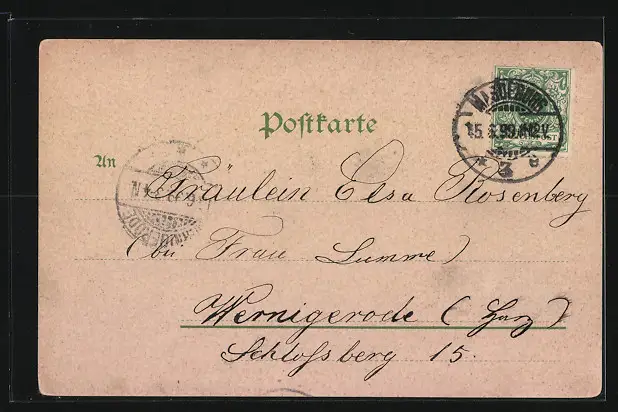 Postkarte
An
Fräulein Elsa Rosenberg
(bei Frau Lumme)
Wernigerode (Harz)
Schloßberg 15.